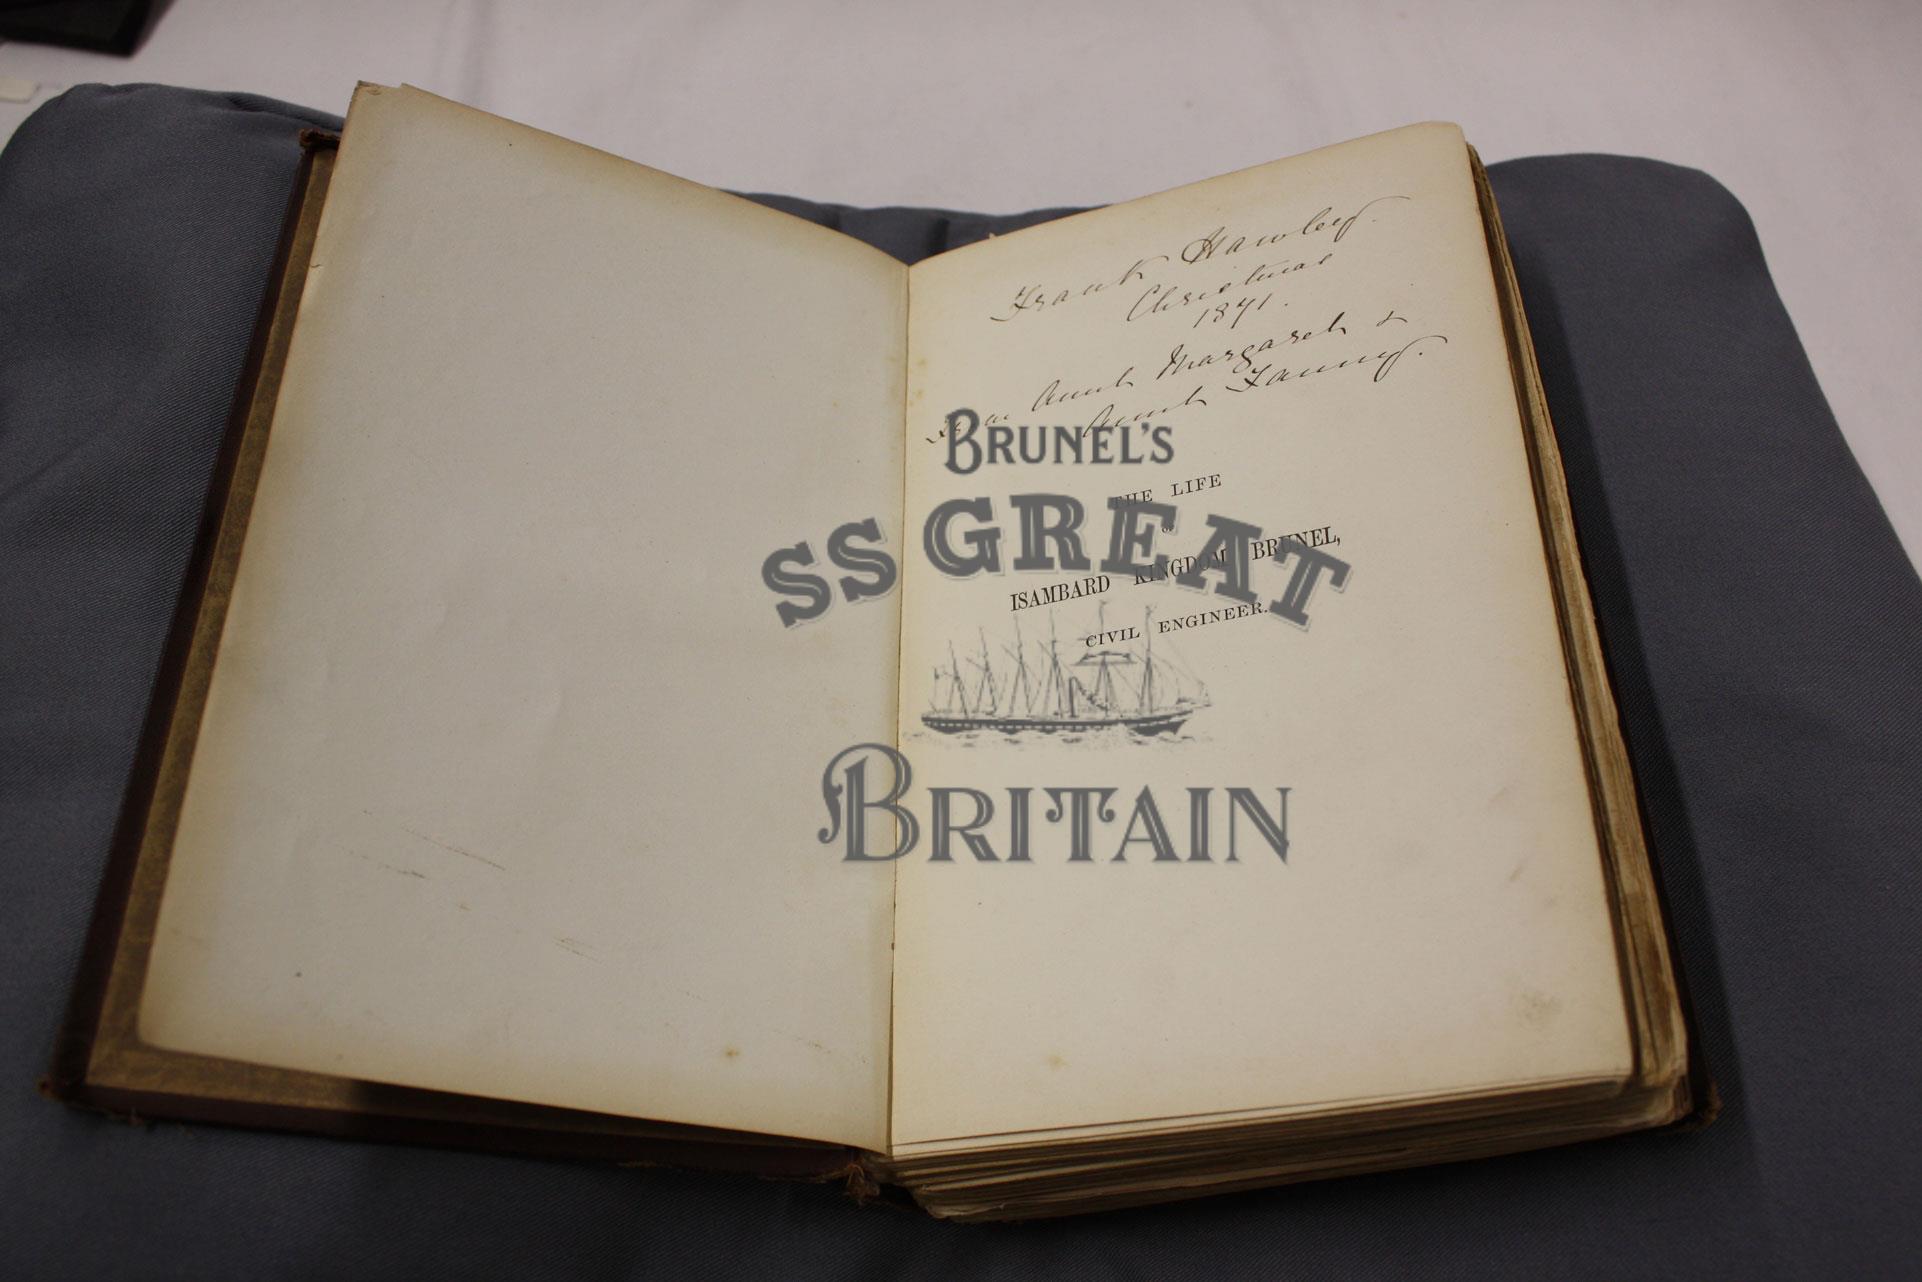 Frank Hawley.
Christmas
1871.
From Aunt Margaret &
Aunt Fanny.
THE LIFE
OF
ISAMBARD KINGDOM BRUNEL,
CIVIL ENGINEER.
BRUNEL'S
SS GREAT
BRITAIN